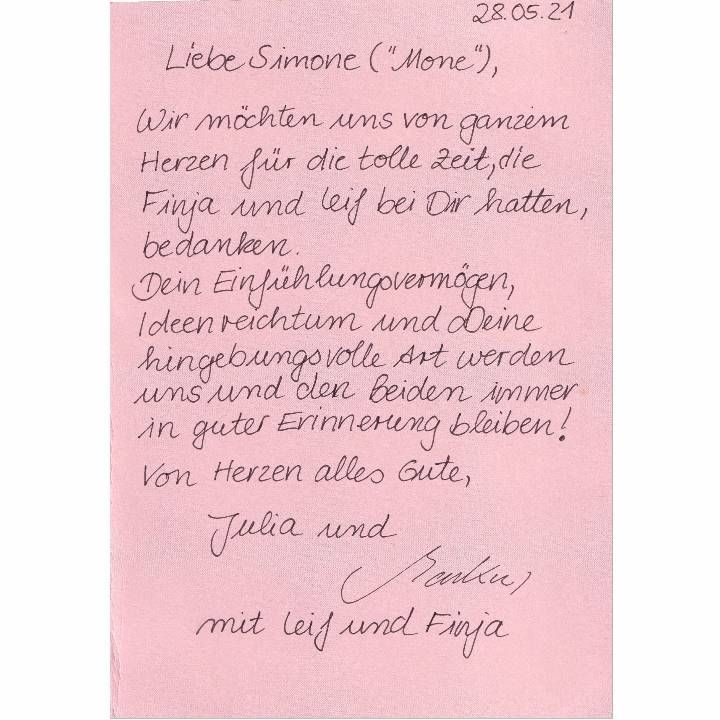 28.05.21
Liebe Simone ("Mone"),
Wir möchten uns von ganzem
Herzen für die tolle Zeit, die
Finja und Leif bei Dir hatten,
bedanken.
Dein Einfühlungsvermögen,
Ideenreichtum und Deine
hingebungsvolle Art werden
uns und den Beiden immer
in guter Erinnerung bleiben!
Von Herzen alles Gute,
Julia und
Markus
mit Leif und Finja